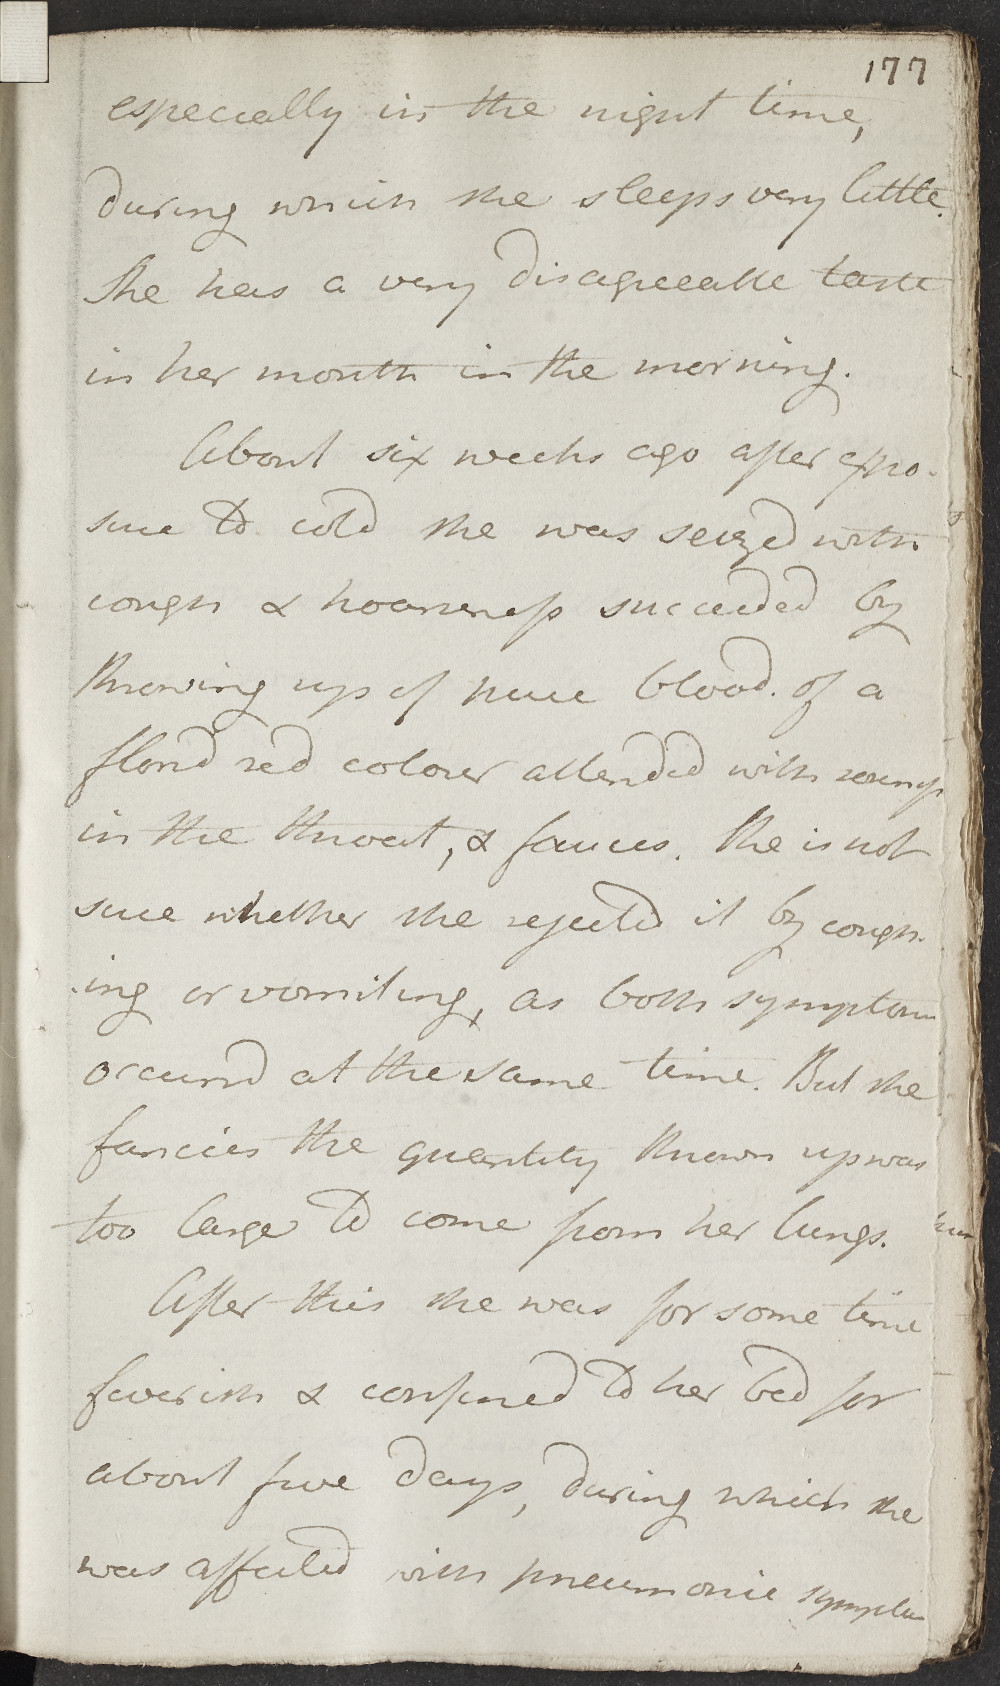 177
especially in the night time,
during which she sleeps very little.
She has a very disagreeable taste
in her mouth in the morning.
About six weeks ago after expo-
sure to cold she was seized with
cough & hoarseness succeeded by
throwing up of pure blood. of a
florid red colour attended with
in the throat, & fauces. She is not
sure whether she rejected it by cough-
-ing or vomiting, as both symptoms
occurrd at the same time. But she
fancies the quantity thrown up was
too large to come from her lungs.
After this she was for some time
feverish & confined to her bed for
about five days, during which she
was affected with pneumonic symptoms